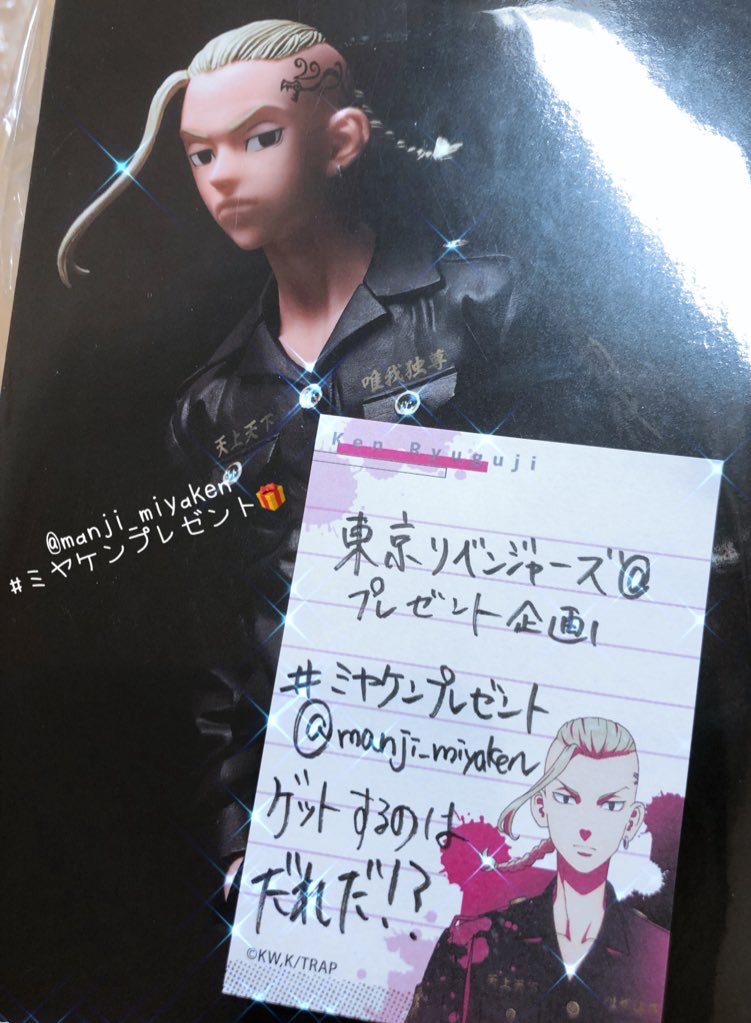 唯我独尊
天上天下
@manji_miyaken
#ミヤケンプレゼント🎁
Ken Ryuguji
東京リベンジャーズ@
プレゼント企画!
#ミヤケンプレゼント
@manji_miyaken
ゲットするのは
だれだ!?
©KW,K/TRAP
天上天下